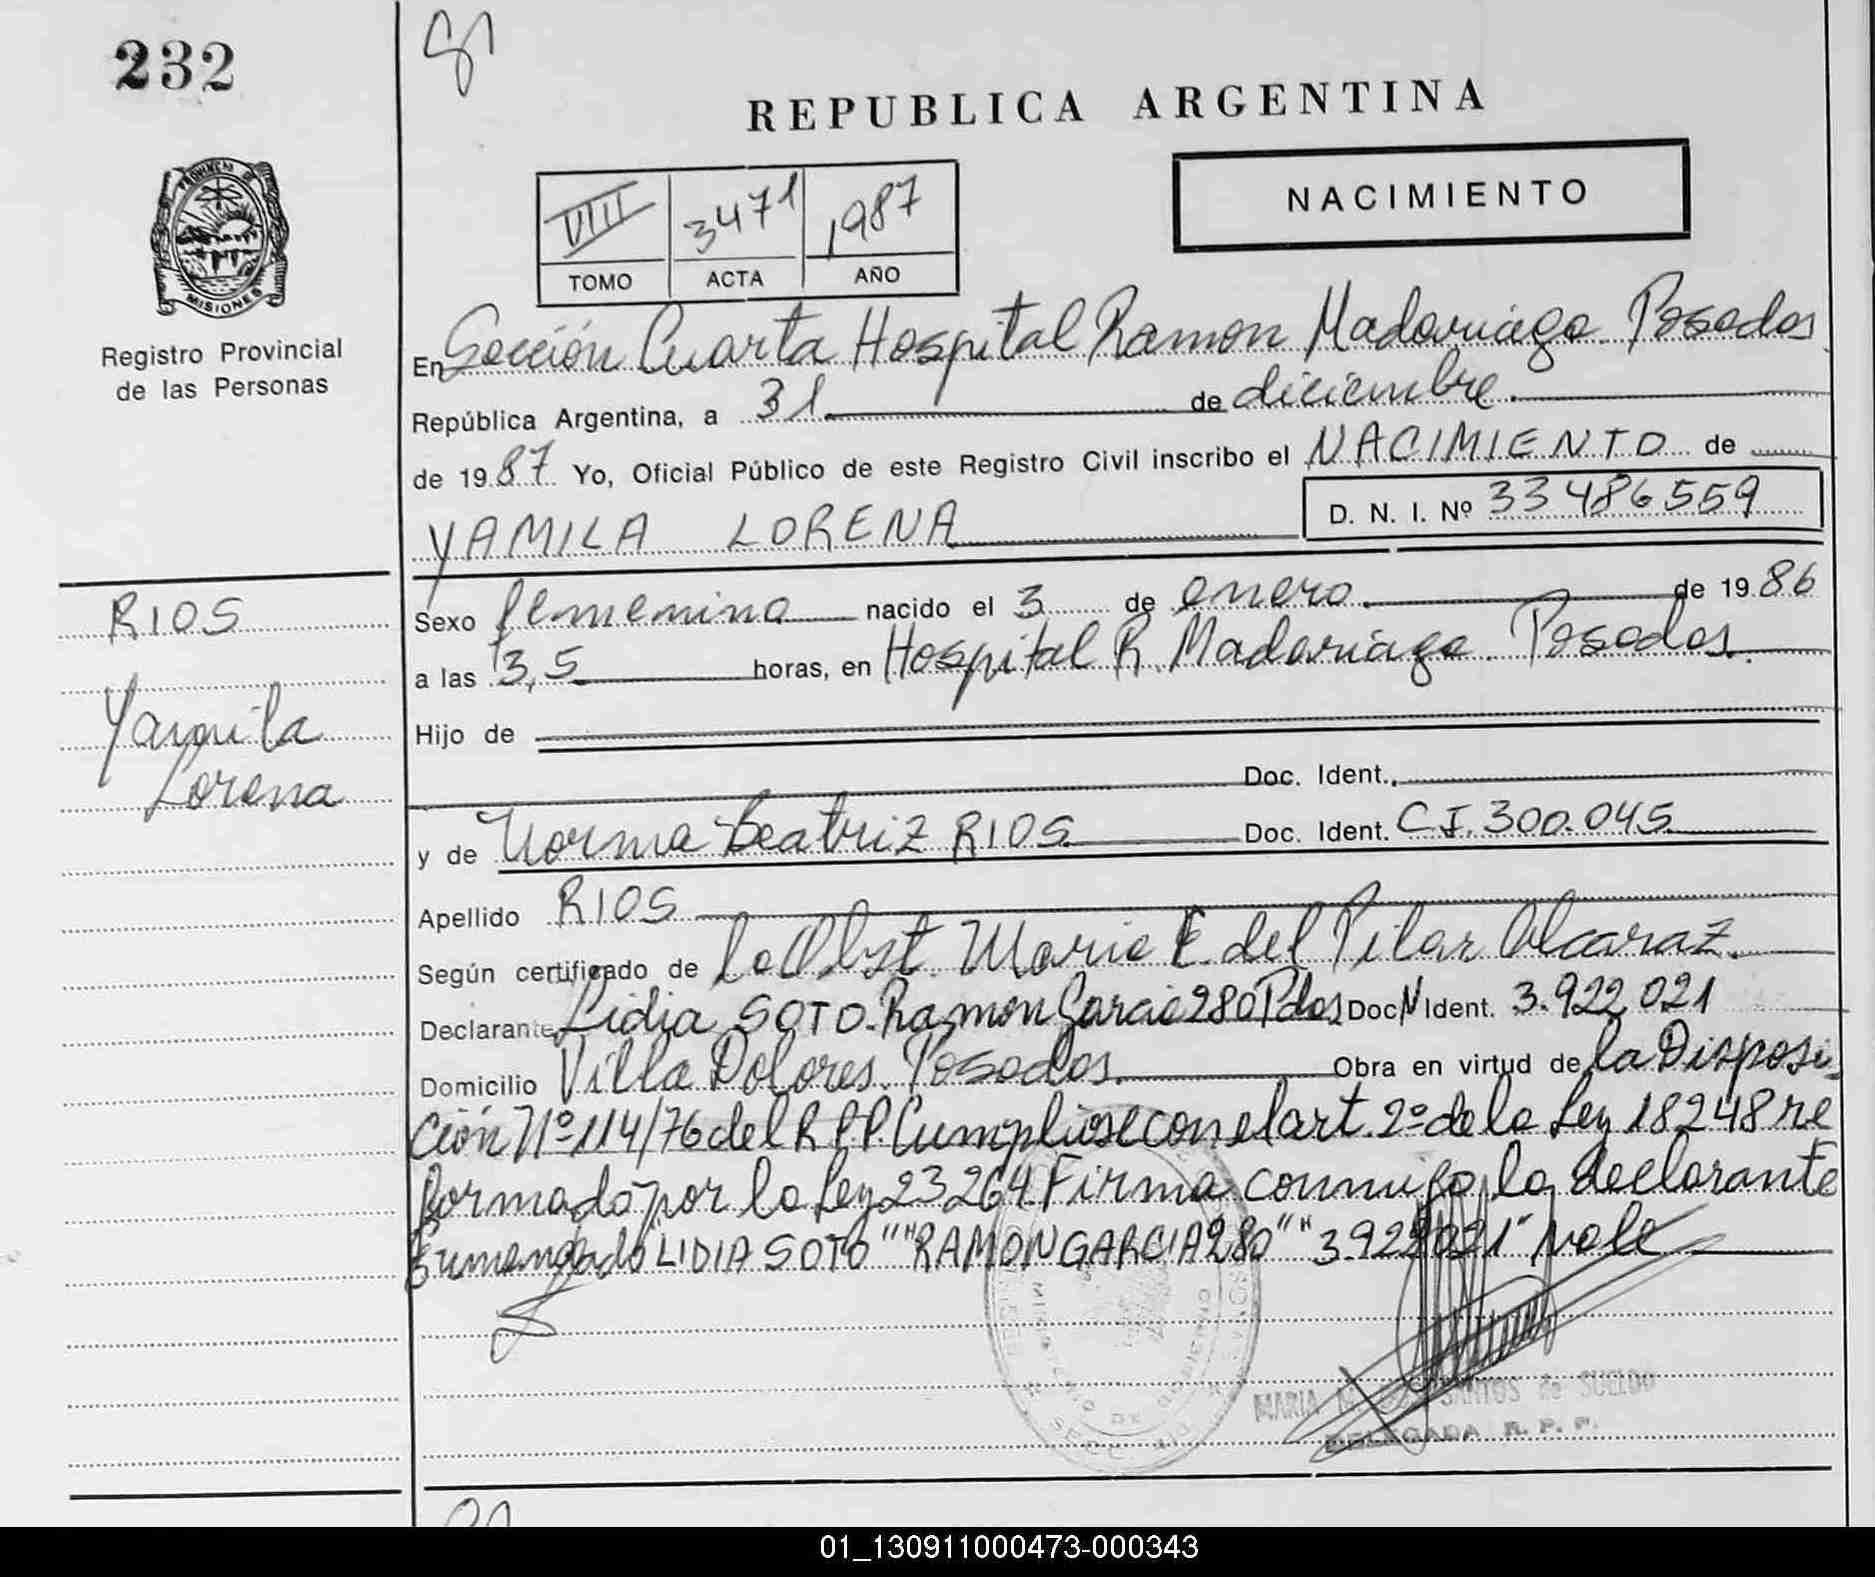 232
REPUBLICA ARGENTINA
NACIMIENTO
VIII 3471 1987
TOMO ACTA AÑO
PROVINCIA DE
MISIONES
Registro Provincial
de las Personas
En Sección Cuarta Hospital Ramon Madariaga. Posadas
República Argentina, a 31 de diciembre.
de 1987 Yo, Oficial Público de este Registro Civil inscribo el NACIMIENTO de
YAMILA LORENA
D. N. I. Nº 33486559
RIOS
Yamila
Lorena
Sexo femenino nacido el 3 de enero. de 1986
a las 3,5 horas, en Hospital R. Madariaga. Posadas.
Hijo de
Doc. Ident.
y de Norma Beatriz RIOS. Doc. Ident. C.I. 300.045
Apellido RIOS
Según certificado de la Obst. Maria E. del Pilar Alcaraz.
Declarante Lidia SOTO. Ramon Garcia 280 Pdas Doc. Ident. 3.922.021
Domicilio Villa Dolores. Posadas. Obra en virtud de la Disposi
ción Nº 114/76 del R.P.P. Cumpliose con el art. 2º de la Ley 18248 re
formado por la Ley 23264. Firma conmigo la declarante
Enmendado LIDIA SOTO" "RAMON GARCIA 280" "3.922021" vale
MARIA SANTOS de SUELDO
DELEGADA R. P. P.
01_130911000473-000343